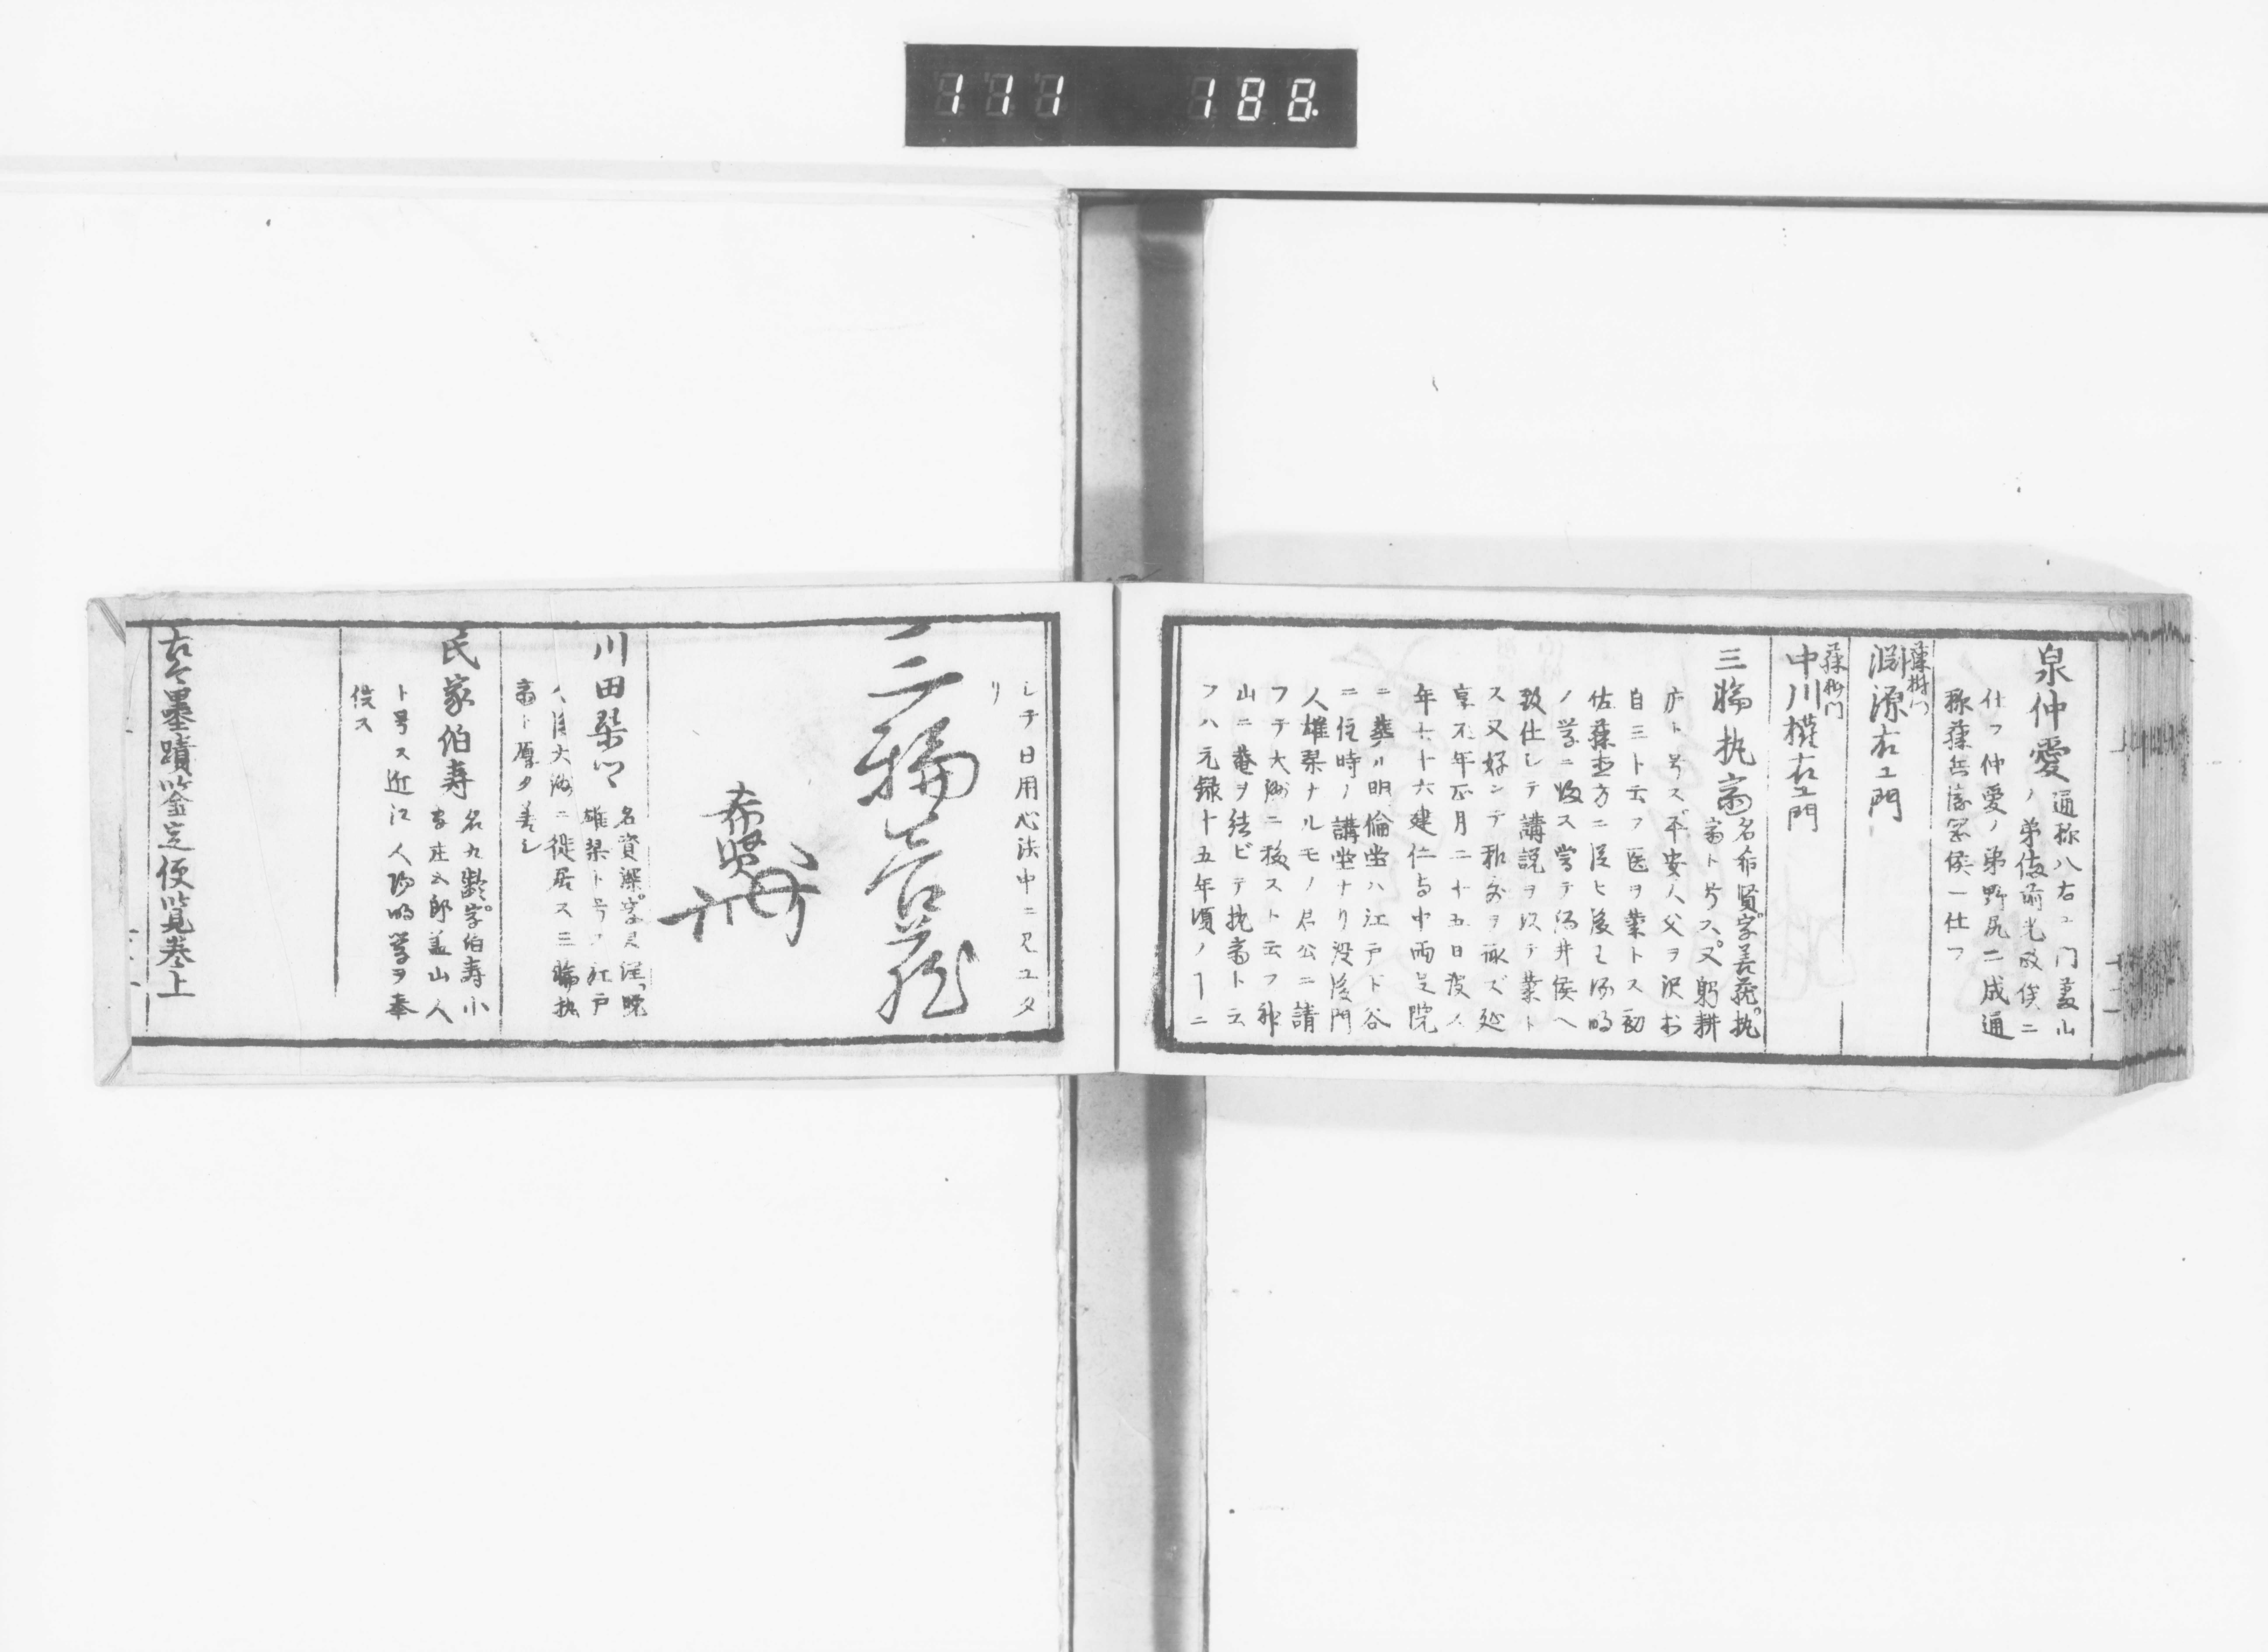 111 188.
泉仲愛 通称八右エ門蕃山
ノ弟備前光政侯ニ
仕フ仲愛ノ弟野尻二成通
称藤兵衛 侯ニ仕フ
藤樹門
淵源右エ門
藤樹門
中川権右エ門
三輪執斎 名希賢字善蔵執
斎ト号ス又躬耕
庐ト号ス平安人父ヲ沢村
自三ト云フ医ヲ業トス初
佐藤直方ニ従ヒ後王陽明
ノ学ニ皈ス嘗テ酒井侯ヘ
致仕シテ講説ヲ以テ業ト
ス又好ンデ和哥ヲ詠ズ延
享元年正月二十五日歿ス
年七十六建仁寺中両足院
ニ葬ル明倫堂ハ江戸下谷
ニ住時ノ講堂ナリ没後門
人雄琴ナルモノ君公ニ請
フテ大洲ニ移スト云フ
山ニ菴ヲ結ビテ執斎ト云
フハ元録十五年頃ノヿニ
シテ日用心法中ニ見ユタ
リ
三輪善蔵
希賢
川田琴卿 名資深字
雄琴ト号ス江戸
人後大洲ニ徙居ス三輪執
斎ト厚タ善シ
氏家伯寿 名九齢字伯寿小
字庄五郎蓋山人
ト号ス近江人陽明学ヲ奉
後ス
古今墨蹟鑒定便覧巻上